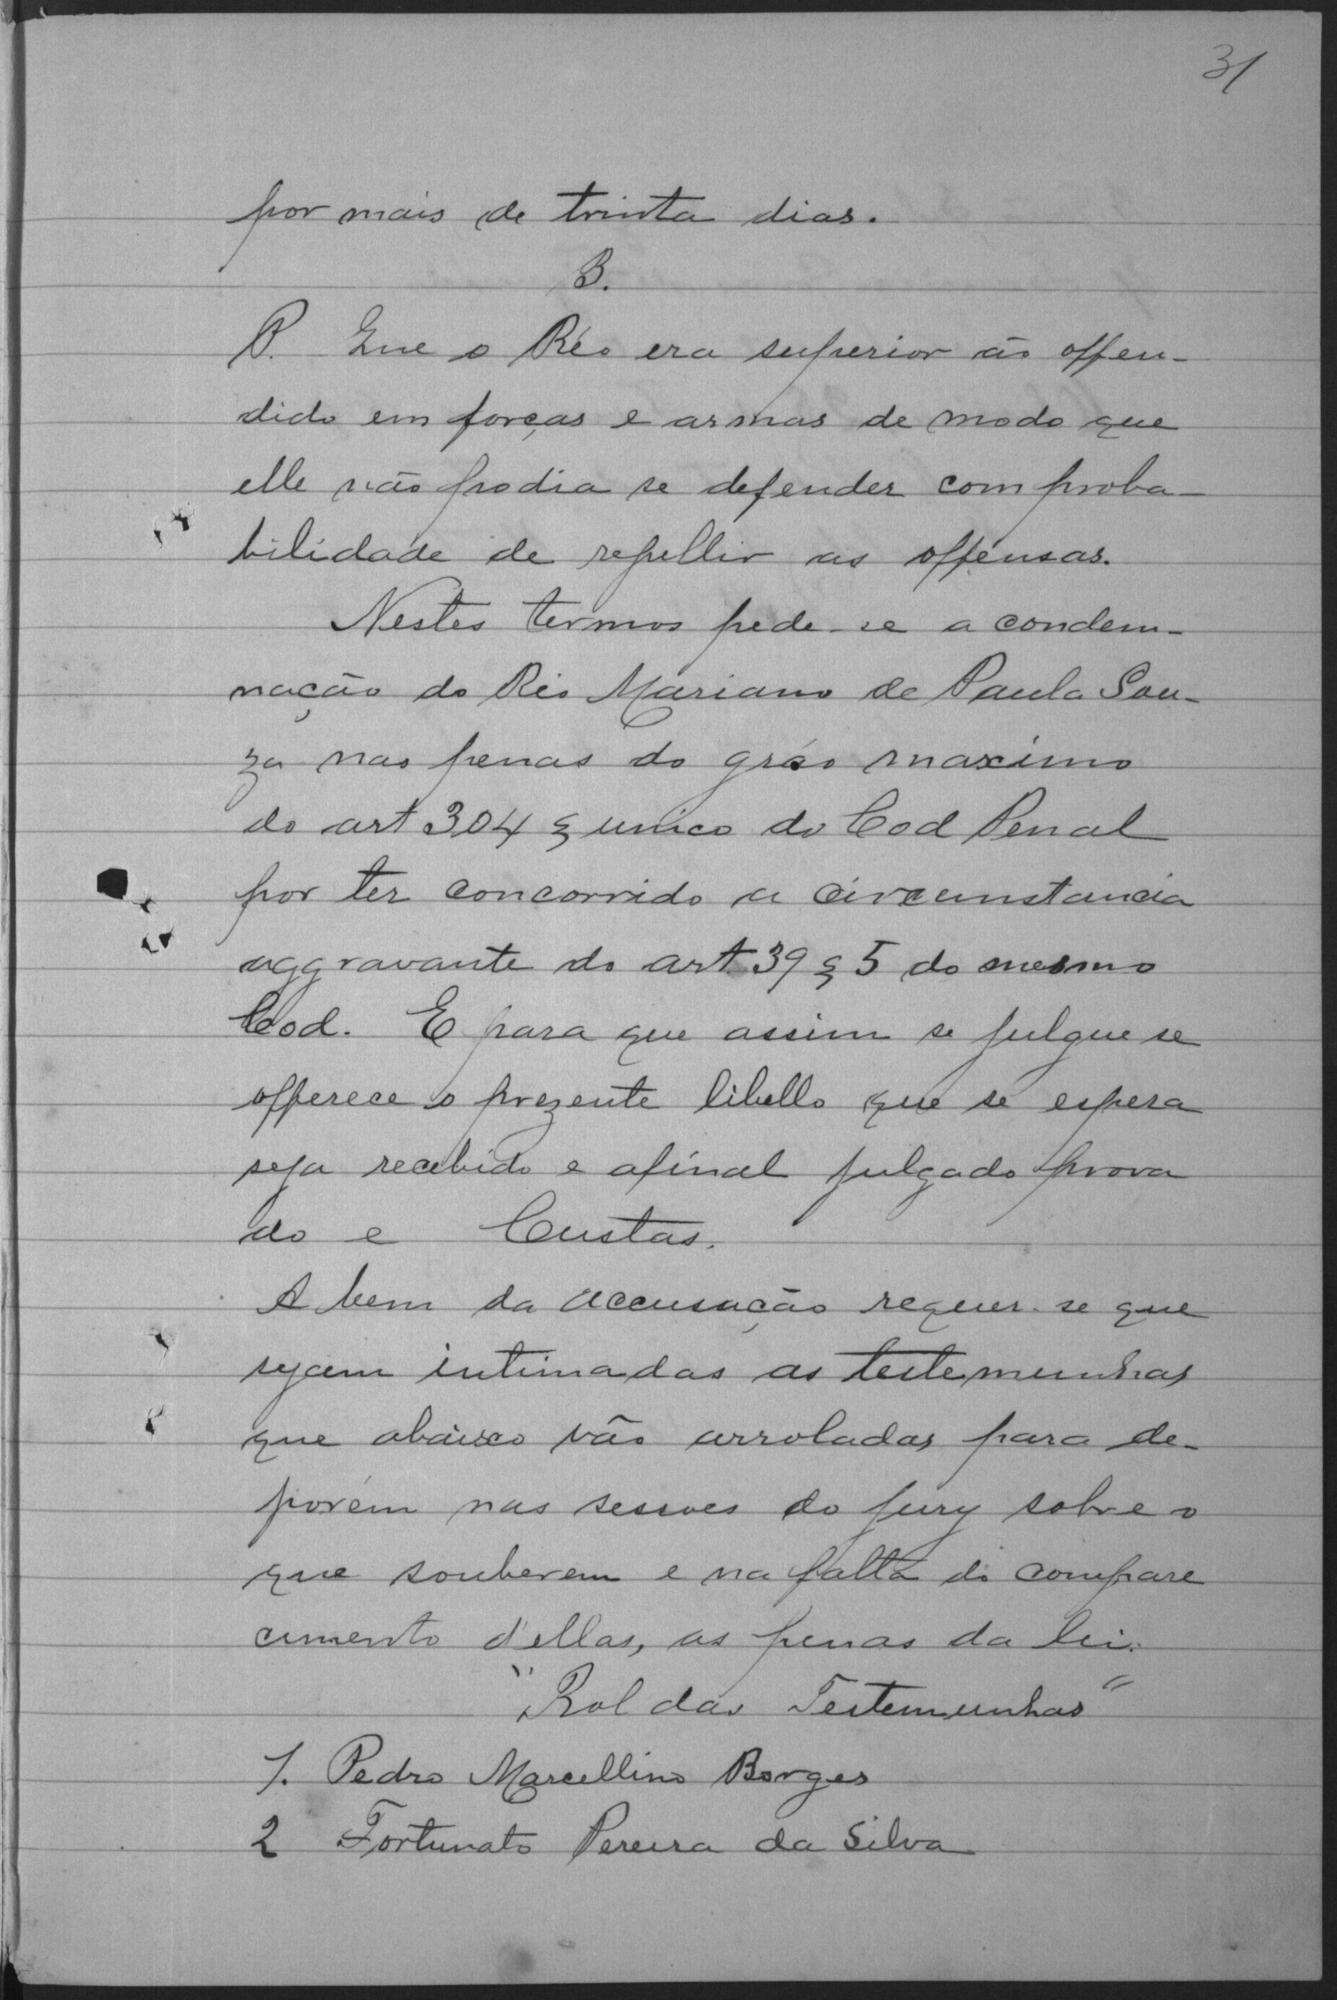 31
por mais de trinta dias.
B.
P. Que o Réo era superior ao offen-
dido em forças e armas de modo que
elle não podia se defender com proba-
bilidade de repellir as offensas.
Nestes termos pede-se a condem-
nação do Réo Mariano de Paula Sou-
za nas penas do gráo maximo
do art 304 § unico do Cod Penal
por ter concorrido a circunstancia
aggravante do art 39 § 5 do mesmo
Cod. E para que assim se julgue se
offerece o prezente libello que se espera
seja recebido e afinal julgado prova
do e Custas.
A bem da accusação requer-se que
sejam intimadas as testemunhas
que abaixo vão arroladas para de-
porem nas sessoes do jury sobre o
que souberem e na falta do compare
cimento d'ellas, as penas da lei.
"Rol das Testemunhas"
1. Pedro Marcellino Borges
2 Fortunato Pereira da Silva